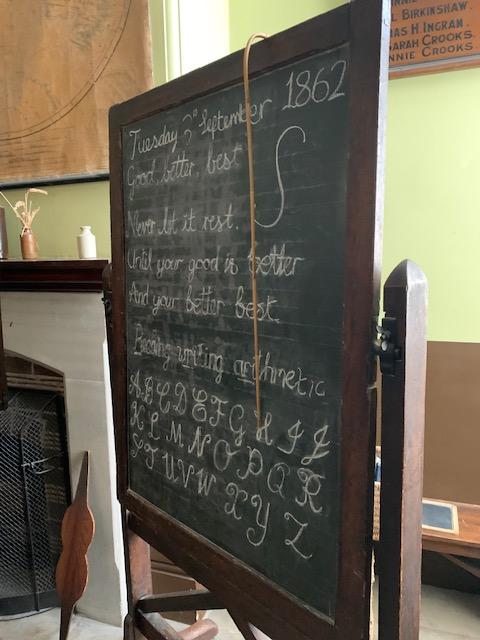 L BIRKINSHAW.
AS H INGRAM.
SARAH CROOKS.
NNIE CROOKS.
Tuesday September 1862
Good, better, best
S
Never let it rest.
Until your good is better
And your better best.
Reading writing arithmetic
A B C D E F G H I J
K L M N O P Q R
S T U V W X Y Z